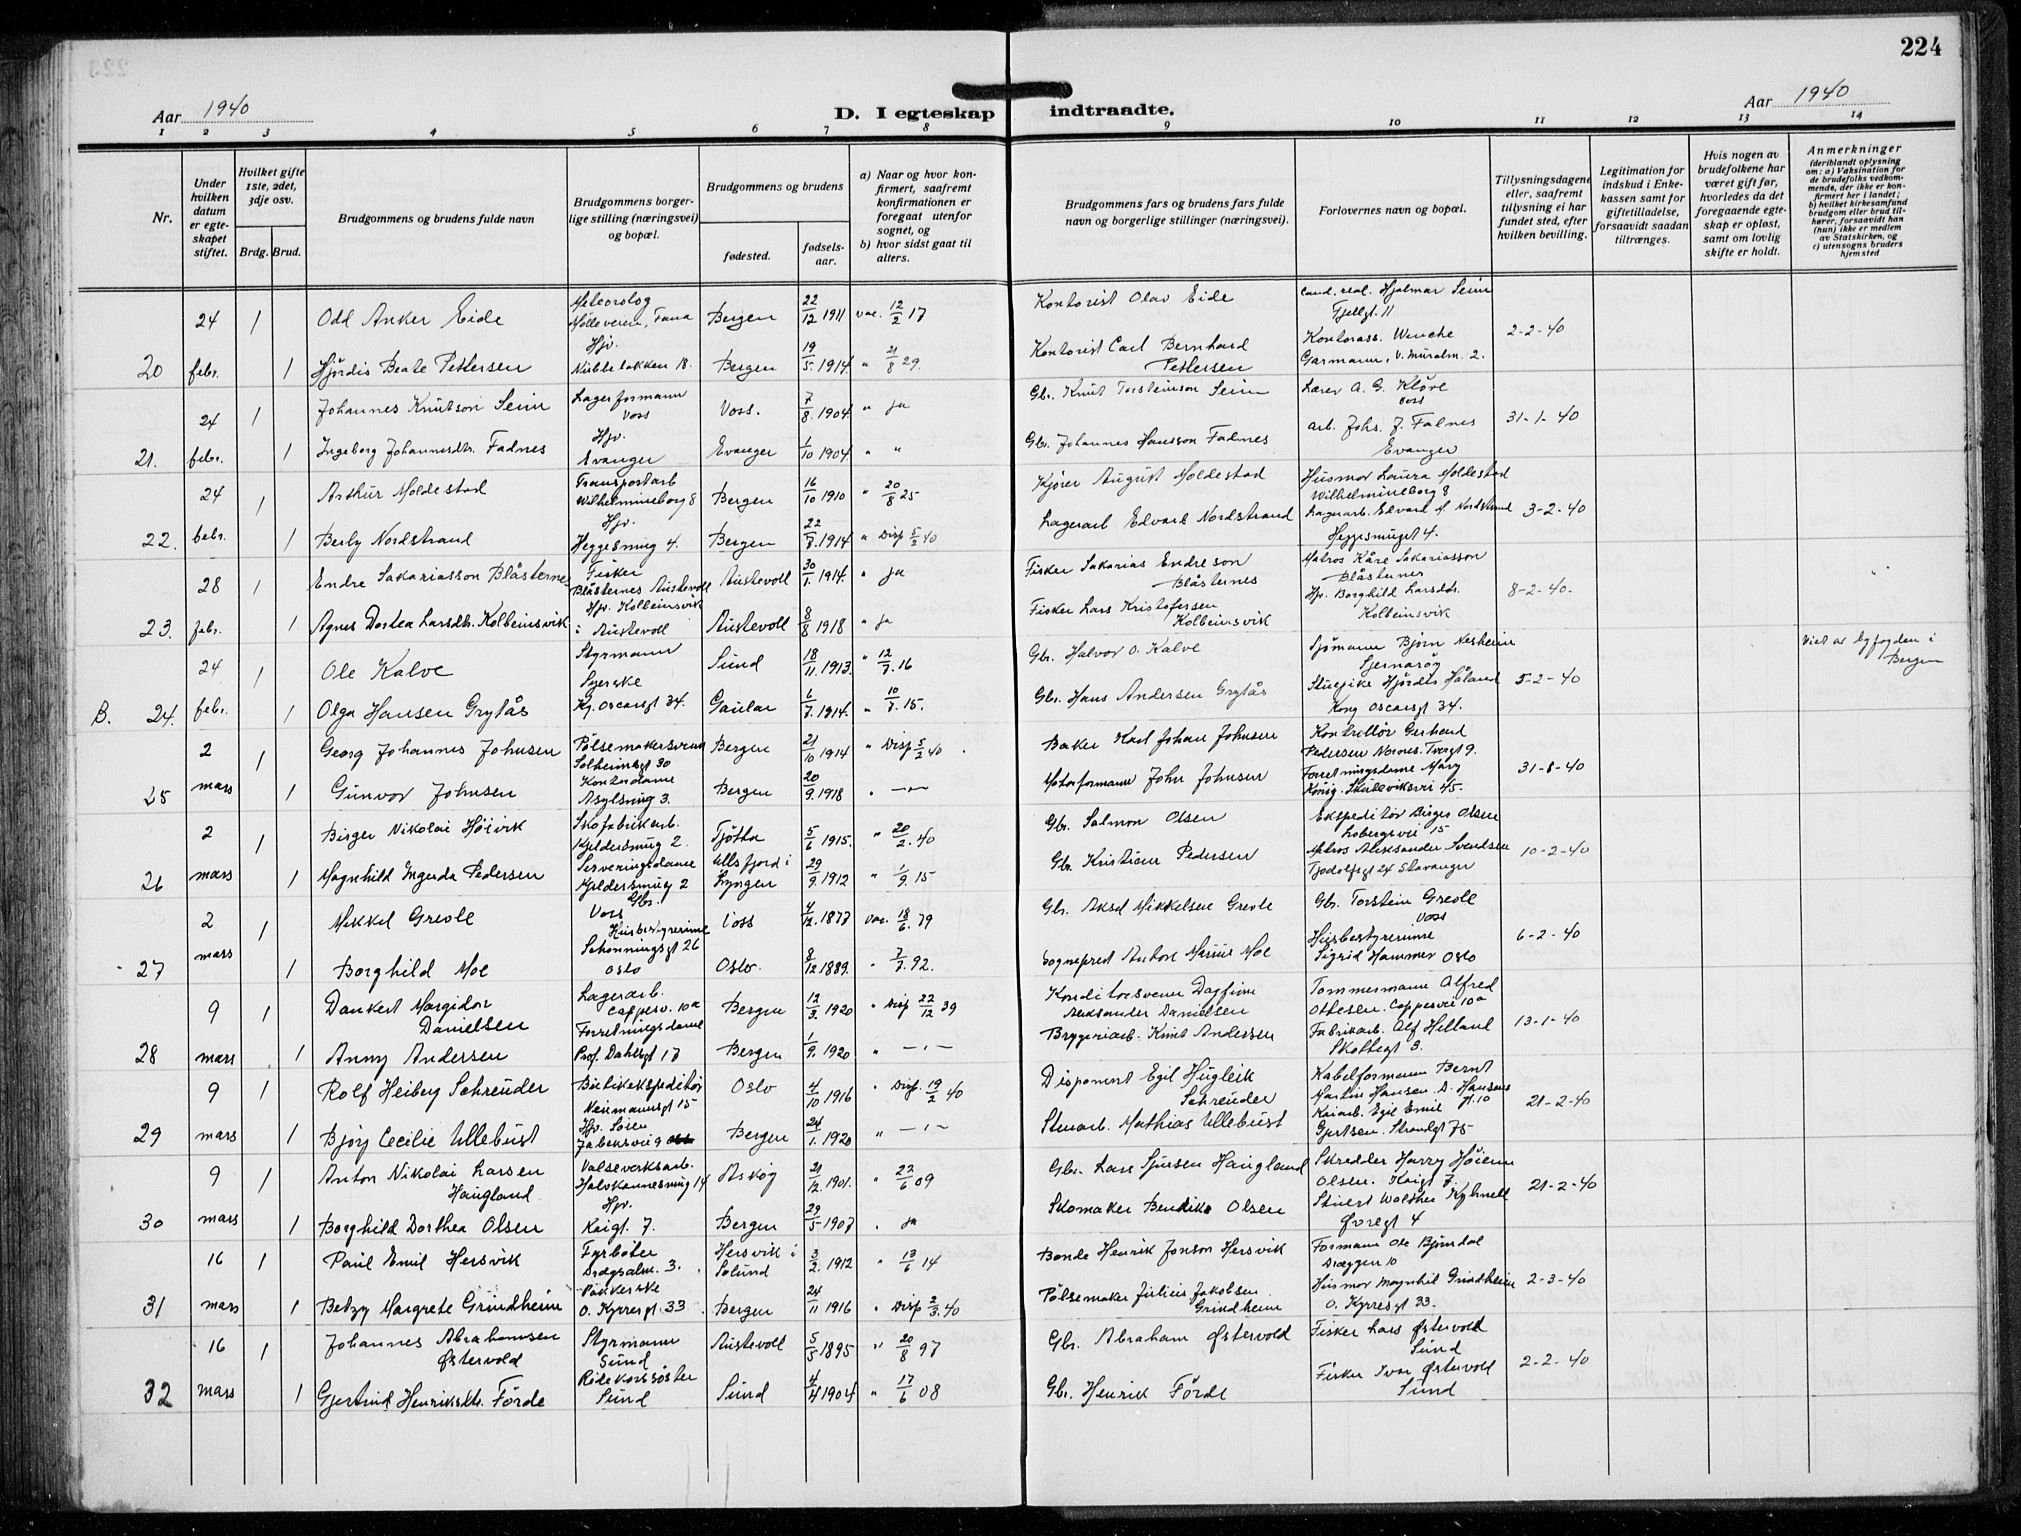 224
Aar 1940
D. I egteskap indtraadte.
Aar 1940
1 2 3 4 5 6 7 8 9 10 11 12 13 14
Nr.
Under hvilken datum er egteskapet stiftet.
Hvilket gifte 1ste, 2det, 3dje osv.
Brdg. Brud.
Brudgommens og brudens fulde navn
Brudgommens borgerlige stilling (næringsvei) og bopæl.
Brudgommens og brudens
fødested.
fødselsaar.
a) Naar og hvor konfirmert, saafremt konfirmationen er foregaat utenfor sognet, og
b) hvor sidst gaat til alters.
Brudgommens fars og brudens fars fulde navn og borgerlige stillinger (næringsvei).
Forlovernes navn og bopæl.
Tillysningsdagene eller, saafremt tillysning ei har fundet sted, efter hvilken bevilling.
Legitimation for indskud i Enkekassen samt for giftetilladelse, forsaavidt saadan tiltrænges.
Hvis nogen av brudefolkene har været gift før, hvorledes da det foregaaende egteskap er opløst, samt om lovlig skifte er holdt.
Anmerkninger
(deriblandt oplysning om: a) Vaksination for de brudefolks vedkommende, der ikke er konfirmert her i landet; b) hvilket kirkesamfund brudgom eller brud tilhører, forsaavidt han (hun) ikke er medlem av Statskirken, og c) utensogns bruders hjemsted
24 1 Odd Anker Eide Meteorolog Mölleveren, Fana Bergen 22/12 1911 vac. 12/2 17 Kontorist Olav Eide Cand. real. Hjalmar Seim Fjellgt. 11
20 febr. 1 Hjördis Beate Pettersen Hjv. Nubbebakken 18. Bergen 19/5 1914. " 21/8 29. Kontorist Carl Bernhard Pettersen Kontorass. Wenche Garmann, v. Muralm. 2. 2-2-40
24 1 Johannes Knutson Seim Lagerformann Voss Voss. 7/8 1904 " ja Gbr. Knut Torsteinson Seim Lærer A. G. Klöve Voss
21. febr. 1 Ingeborg Johannesdtr. Fadnes Hjv. Evanger Evanger 1/10 1904 " " Gbr. Johannes Hansson Fadnes arb. Johs. J. Fadnes Evanger 31-1-40
24 1 Arthur Moldestad Transportarb Wilhelmineborg 8 Bergen 16/10 1910 " 20/8 25 Kjörer August Moldestad Husmor Laura Moldestad Wilhelmineborg 8
22. febr. 1 Berly Nordstrand Hjv. Heggesmug 4. Bergen 22/8 1914 " Disp 5/2 40 Lagerarb Edvard Nordstrand Lagerarb. Edvard M Nordstrand Heggesmuget 4. 3-2-40
28 1 Endre Sakariasson Blåsternes Fisker Blåsternes Austevoll Austevoll 30/1. 1914. " ja Fisker Sakarias Endreson Blåsternes Matros Kåre Sakariasson Blåsternes
23. febr. 1 Agnes Dortea Larsdtr. Kolbeinsvik Hjv. Kolbeinsvik i Austevoll Austevoll 8/8 1918 " ja Fisker Lars Kristofersen Kolbeinsvik Hjv. Borghild Larsdtr. Kolbeinsvik 8-2-40.
24 1 Ole Kalve Styrmann Sund 18/11. 1913. " 12/7. 16 Gbr. Halvor O. Kalve Sjömann Björn Nesheim Sjernaröy Viet av byfogden i Bergen
B. 24. febr. 1 Olga Hansen Grytås Syerske Kg. Oscarsgt 34. Gaular 1/7. 1914. " 10/7. 15. Gbr. Hans Andersen Grytås Stuepike Hjördis Håland Kong Oscarsgt 34. 5-2-40
2 1 Georg Johannes Johnsen Pölsemakersvenn Solheimsgt 30 Bergen 21/10 1914 " Disp 5/2 40 Baker Karl Johan Johnsen Kontrollör Gerhard Pedersen Nornes. Tvergt 9.
25 mars 1 Gunvor Johnsen Kontordame Asylsmug 3. Bergen 20/9. 1918 " — Motorformann John Johnsen Forretningsdame Mary König. Skuteviksvei 45. 31-8-40
2 1 Birger Nikolai Höivik Skofabrikarb. Kjeldersmug 2. Tjötta 5/6 1915. " 20/2. 40 Gbr. Salmon Olsen Ekspeditör Birger Olsen Lobergsvei 15
26 mars 1 Magnhild Ingerda Pedersen Serveringsdame Kjeldersmug 2 Ullsfjord i Lyngen 29/9. 1912 " 1/9. 15 Gbr. Kristian Pedersen Matros Aleksander Svendsen Tjodolfsgt 24 Stavanger 10-2-40
2 1 Mikkel Greve Gbr. Voss Voss 4/12. 1877 vac. 18/6. 79 Gbr. Aksel Mikkelsen Greve Gbr. Torstein Greve Voss
27 mars 1 Borghild Moe Husbestyrerinne Schønningsgt 26 Oslo Oslo. 8/12 1889. " 7/7. 92. Sogneprest Anton Marius Moe Husbestyrerinne Sigrid Hammer Oslo 6-2-40
9 1 Dankert Margidor Danielsen Lagerarb. Cappesv. 10a Bergen 12/3. 1920 " Disp 22/12 39 Konditorsvenn Dagfinn Aleksander Danielsen Tommermann Alfred Ottesen. Cappesvei 10a
28 mars 1 Anny Andersen Forretningsdame Prof. Dahlsgt 17 Bergen 1/9. 1920 " —"— Bryggeriarb. Knut Andersen Fabrikarb. Alf Helland Skottegt 3. 13-1-40
9 1 Rolf Heiberg Schreuder Butikekspeditör Neumannsgt 15 Oslo 4/10 1916 " Disp. 19/2 40 Disponent Egil Hugleik Schreuder Kabelformann Bernt Martin Hansen. D. Hansens Pl. 10
29 mars 1 Bjørg Cecilie Ullebust Hjv. Søren Jaabeksvei 9 Bergen 24/1. 1920 " —"— Stuearb. Mathias Ullebust Kaiarb. Egil Emil Gjertsen. Strandgt 75 21-2-40
9 1 Anton Nikolai Larsen Haugland Valseverksarb. Halvkannesmug 14 Askøy 21/12. 1901. " 22/6 09 Gbr. Lars Sjursen Haugland Skredder Harry Høienn Olsen. Kaigt 7.
30 mars 1 Borghild Dorthea Olsen Hjv. Kaigt. 7. Bergen 29/5 1907 " ja Skomaker Bendiks Olsen Stuert Walther Kyhnell Øvregt 4 21-2-40
16 1 Paul Emil Hersvik Fyrbøter Drægsalm. 3. Hersvik i Solund 3/2. 1912 " 13/6 14 Bonde Henrik Jonson Hersvik Formann Ole Bjørndal Dræggen 10
31 mars 1 Betzy Margrete Grindheim Pakkerske O. Kyrresgt. 33 Bergen 24/11 1916 " Disp 2/3. 40 Pølsemaker Julius Jakobsen Grindheim Husmor Magnhil Grindheim O. Kyrresgt 33. 2-3-40
16 1 Johannes Abrahamsen Østervold Styrmann Sund Austevoll 5/5 1895 " 20/8 97 Gbr. Abraham Østervold Fisker Lars Østervold Sund
32 mars 1 Gjertrud Henriksdtr. Förde Rødekorssøster Sund Sund 4/4 1904 " 17/6 08 Gbr. Henrik Förde Fisker Ivar Østervold Sund 2-2-40